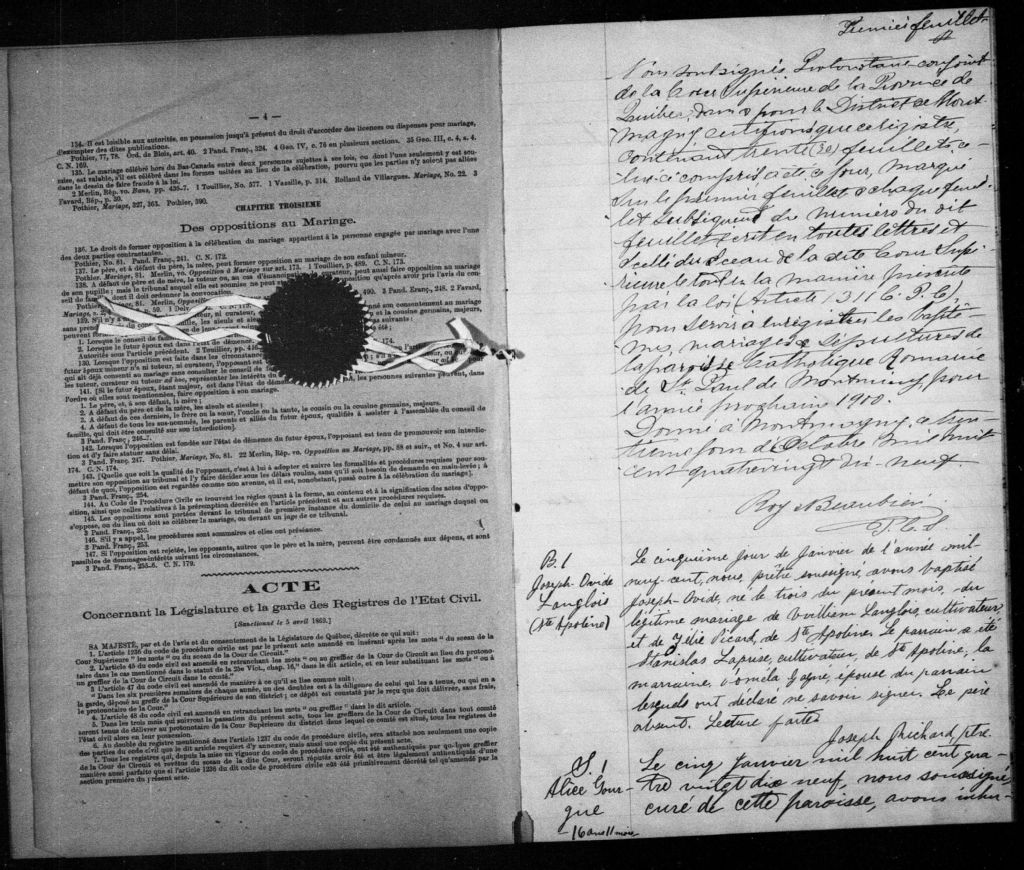 — 4 —
134. Il est loisible aux autorités, en possession jusqu'à présent du droit d'accorder des licences ou dispenses pour mariage,
d'exempter des dites publications.
Pothier, 77, 78. Ord. de Blois, art. 40. 2 Pand. Franç., 324. 4 Geo. IV, c. 76 en plusieurs sections. 35 Geo. III, c. 4, s. 4.
C. N. 169.
135. Le mariage célébré hors du Bas-Canada entre deux personnes sujettes à ses lois, ou dont l'une seulement y est sou-
mise, est valable, s'il est célébré dans les formes usitées au lieu de la célébration, pourvu que les parties n'y soient pas allées
dans le dessein de faire fraude à la loi.
2 Merlin, Rép. vo. Bans, pp. 436-7. 1 Touillier, No. 577. 1 Vazille, p. 314. Rolland de Villargues. Mariage, No. 22. 3
Favard, Rép., p. 30.
Pothier, Mariage, 327, 363. Pothier, 390.
CHAPITRE TROISIEME
Des oppositions au Mariage.
136. Le droit de former opposition à la célébration du mariage appartient à la personne engagée par mariage avec l'une
des deux parties contractantes.
Pothier, No. 81. Pand. Franç., 241. C. N. 172.
137. Le père, et à défaut du père, la mère, peut former opposition au mariage de son enfant mineur.
Pothier, Mariage, 81. Merlin, vo. Opposition à Mariage sur art. 173. 1 Touillier, p. 489. C. N. 173.
138. A défaut de père et de mère, le tuteur, ou, au cas d'émancipation,
peut aussi faire opposition au mariage
de son pupille; mais le tribunal auquel elle est soumise ne peut
qu'après avoir pris l'avis du con-
seil de famille dont il doit ordonner la convocation.
490. 3 Pand. Franç., 248. 2 Favard,
consentement au mariage
et la cousine germains, majeurs,
1. Lorsque le conseil de
2. Lorsque le futur époux est
Autorités sous l'article précédent. 2 Touillier, pp.
140. Lorsque l'opposition est faite dans les circonstances
futur époux mineur n'a ni tuteur, ni curateur, l'opposant est
qui ait déjà consenti au mariage sans consulter le conseil de
les tuteur, curateur ou tuteur ad hoc, représenter les intérêts du
141. [Si le futur époux, étant majeur, est dans l'état de
les personnes suivantes peuvent, dans
l'ordre où elles sont mentionnées, faire opposition à son mariage.
1. Le père, et, à son défaut, la mère;
2. A défaut du père et de la mère, les aïeuls et aïeules;
3. A défaut de ces derniers, le frère ou la sœur, l'oncle ou la tante, le cousin ou la cousine germains, majeurs.
4. A défaut de tous les sus-nommés, les parents et alliés du futur époux, qualifiés à assister à l'assemblée du conseil de
famille, qui doit être consulté sur son interdiction].
3 Pand. Franç., 246-7.
142. Lorsque l'opposition est fondée sur l'état de démence du futur époux, l'opposant est tenu de promouvoir son interdic-
tion et d'y faire statuer sans délai.
3 Pand. Franç. 247. Pothier, Mariage, No. 81. 22 Merlin, Rép. vo. Opposition au Mariage, pp. 88 et suiv., et No. 4 sur art.
174. C. N. 174.
143. [Quelle que soit la qualité de l'opposant, c'est à lui à adopter et suivre les formalités et procédures requises pour sou-
mettre son opposition au tribunal et l'y faire décider sous les délais voulus, sans qu'il soit besoin de demande en main-levée; à
défaut de quoi, l'opposition est regardée comme non avenue, et il est, nonobstant, passé outre à la célébration du mariage].
3 Pand. Franç. 254.
144. Au Code de Procédure Civile se trouvent les règles quant à la forme, au contenu et à la signification des actes d'oppo-
sition, ainsi que celles relatives à la péremption décrétée en l'article précédent et aux autres procédures requises.
145. Les oppositions sont portées devant le tribunal de première instance du domicile de celui au mariage duquel on
s'oppose, ou du lieu où doit se célébrer le mariage, ou devant un juge de ce tribunal.
3 Pand. Franç., 255.
146. S'il y a appel, les procédures sont sommaires et elles ont préséance.
3 Pand. Franç., 253.
147. Si l'opposition est rejetée, les opposants, autres que le père et la mère, peuvent être condamnés aux dépens, et sont
passibles de dommages-intérêts suivant les circonstances.
3 Pand. Franç., 255-6. C. N. 179.
ACTE
Concernant la Législature et la garde des Registres de l'Etat Civil.
[Sanctionné le 5 avril 1869.]
SA MAJESTÉ, par et de l'avis et du consentement de la Législature de Québec, décrète ce qui suit:
1. L'article 1236 du code de procédure civile est par le présent acte amendé en insérant après les mots "du sceau de la
Cour Supérieure" les mots "ou du sceau de la Cour de Circuit."
2. L'article 45 du code civil est amendé en retranchant les mots "ou au greffier de la Cour de Circuit au lieu du protono-
taire dans le cas mentionné dans le statut de la 25e Vict., chap. 16," dans le dit article, et en leur substituant les mots "ou à
un greffier de la Cour de Circuit dans le comté."
3 L'article 47 du code civil est amendé de manière à ce qu'il se lise comme suit:
"Dans les six premières semaines de chaque année, un des doubles est à la diligence de celui qui les a tenus, ou qui en a
la garde, déposé au greffe de la Cour Supérieure de son district; ce dépôt est constaté par le reçu que doit délivrer, sans frais,
le protonotaire de la Cour."
4. L'article 48 du code civil est amendé en retranchant les mots "ou greffier" dans le dit article.
5. Dans les trois mois qui suivront la passation du présent acte, tous les greffiers de la Cour de Circuit dans tout comté
seront tenus de délivrer au protonotaire de la Cour Supérieure du district dans lequel ce comté est situé, tous les registres de
l'état civil alors en leur possession.
6. Au double du registre mentionné dans l'article 1237 du code de procédure civile, sera attaché non seulement une copie
des parties du code civil que le dit article requiert d'y annexer, mais aussi une copie du présent acte.
7. Tous les registres qui, depuis la mise en vigueur du code de procédure civile, ont été authentiqués par quelque greffier
de la Cour de Circuit et revêtu du sceau de la dite Cour, seront réputés avoir été et être également authentiqués d'une
manière aussi parfaite que si l'article 1236 du dit code de procédure civile eût été primitivement décrété tel qu'amendé par la
section première du présent acte.
Premier feuillet
Nous soussignés Protonotaire conjoint
de la Cour Supérieure de la Province de
Québec, dans & pour le District de Mont
magny certifions que ce registre,
contenant trente (30) feuillets ce-
lui-ci compris a été ce jour, marqué
sur le premier feuillet & chaque feuil
let subséquent du numéro du dit
feuillet écrit en toutes lettres et
scellé du sceau de la dite Cour Supé-
rieure le tout en la manière prescrite
par la loi (Article 1311 C. P. C)
pour servir à enregistrer les baptê-
mes, mariages & sépultures de
la paroisse Catholique Romaine
de St. Paul de Montminy pour
l'année prochaine 1900.
Donné à Montmagny, ce
tième jour d'Octobre mil huit
cent quatrevingt dix-neuf.
Roy & Beaubien
P. C. S
B. 1
Joseph-Ovide
Langlois
(Ste Apoline)
Le cinquième jour de Janvier de l'année mil
neuf-cent, nous, prêtre soussigné, avons baptisé
Joseph-Ovide, né le trois du présent mois, du
légitime mariage de Willliam Langlois, cultivateur,
et de Zélie Picard, de Ste Apoline. Le parrain a été
Stanislas Lapise, cultivateur, de Ste Apoline, la
marraine, Gagné, épouse du parrain
lesquels ont déclaré ne savoir signer. Le père
absent. Lecture faite.
Joseph Richard, ptre.
S. 1
Alice Gour-
gue
16 ans 11 mois
Le cinq Janvier mil huit cent qua-
tre vingt dix neuf, nous soussigné
curé de cette paroisse, avons inhu-